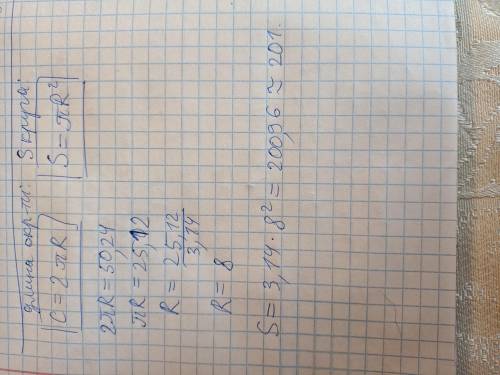 длина окр-ти: S круга:
C = 2πR S = πR²
2πR = 50,24
πR = 25,12
R = 25,12 / 3,14
R = 8
S = 3,14 · 8² = 200,96 ≈ 201.